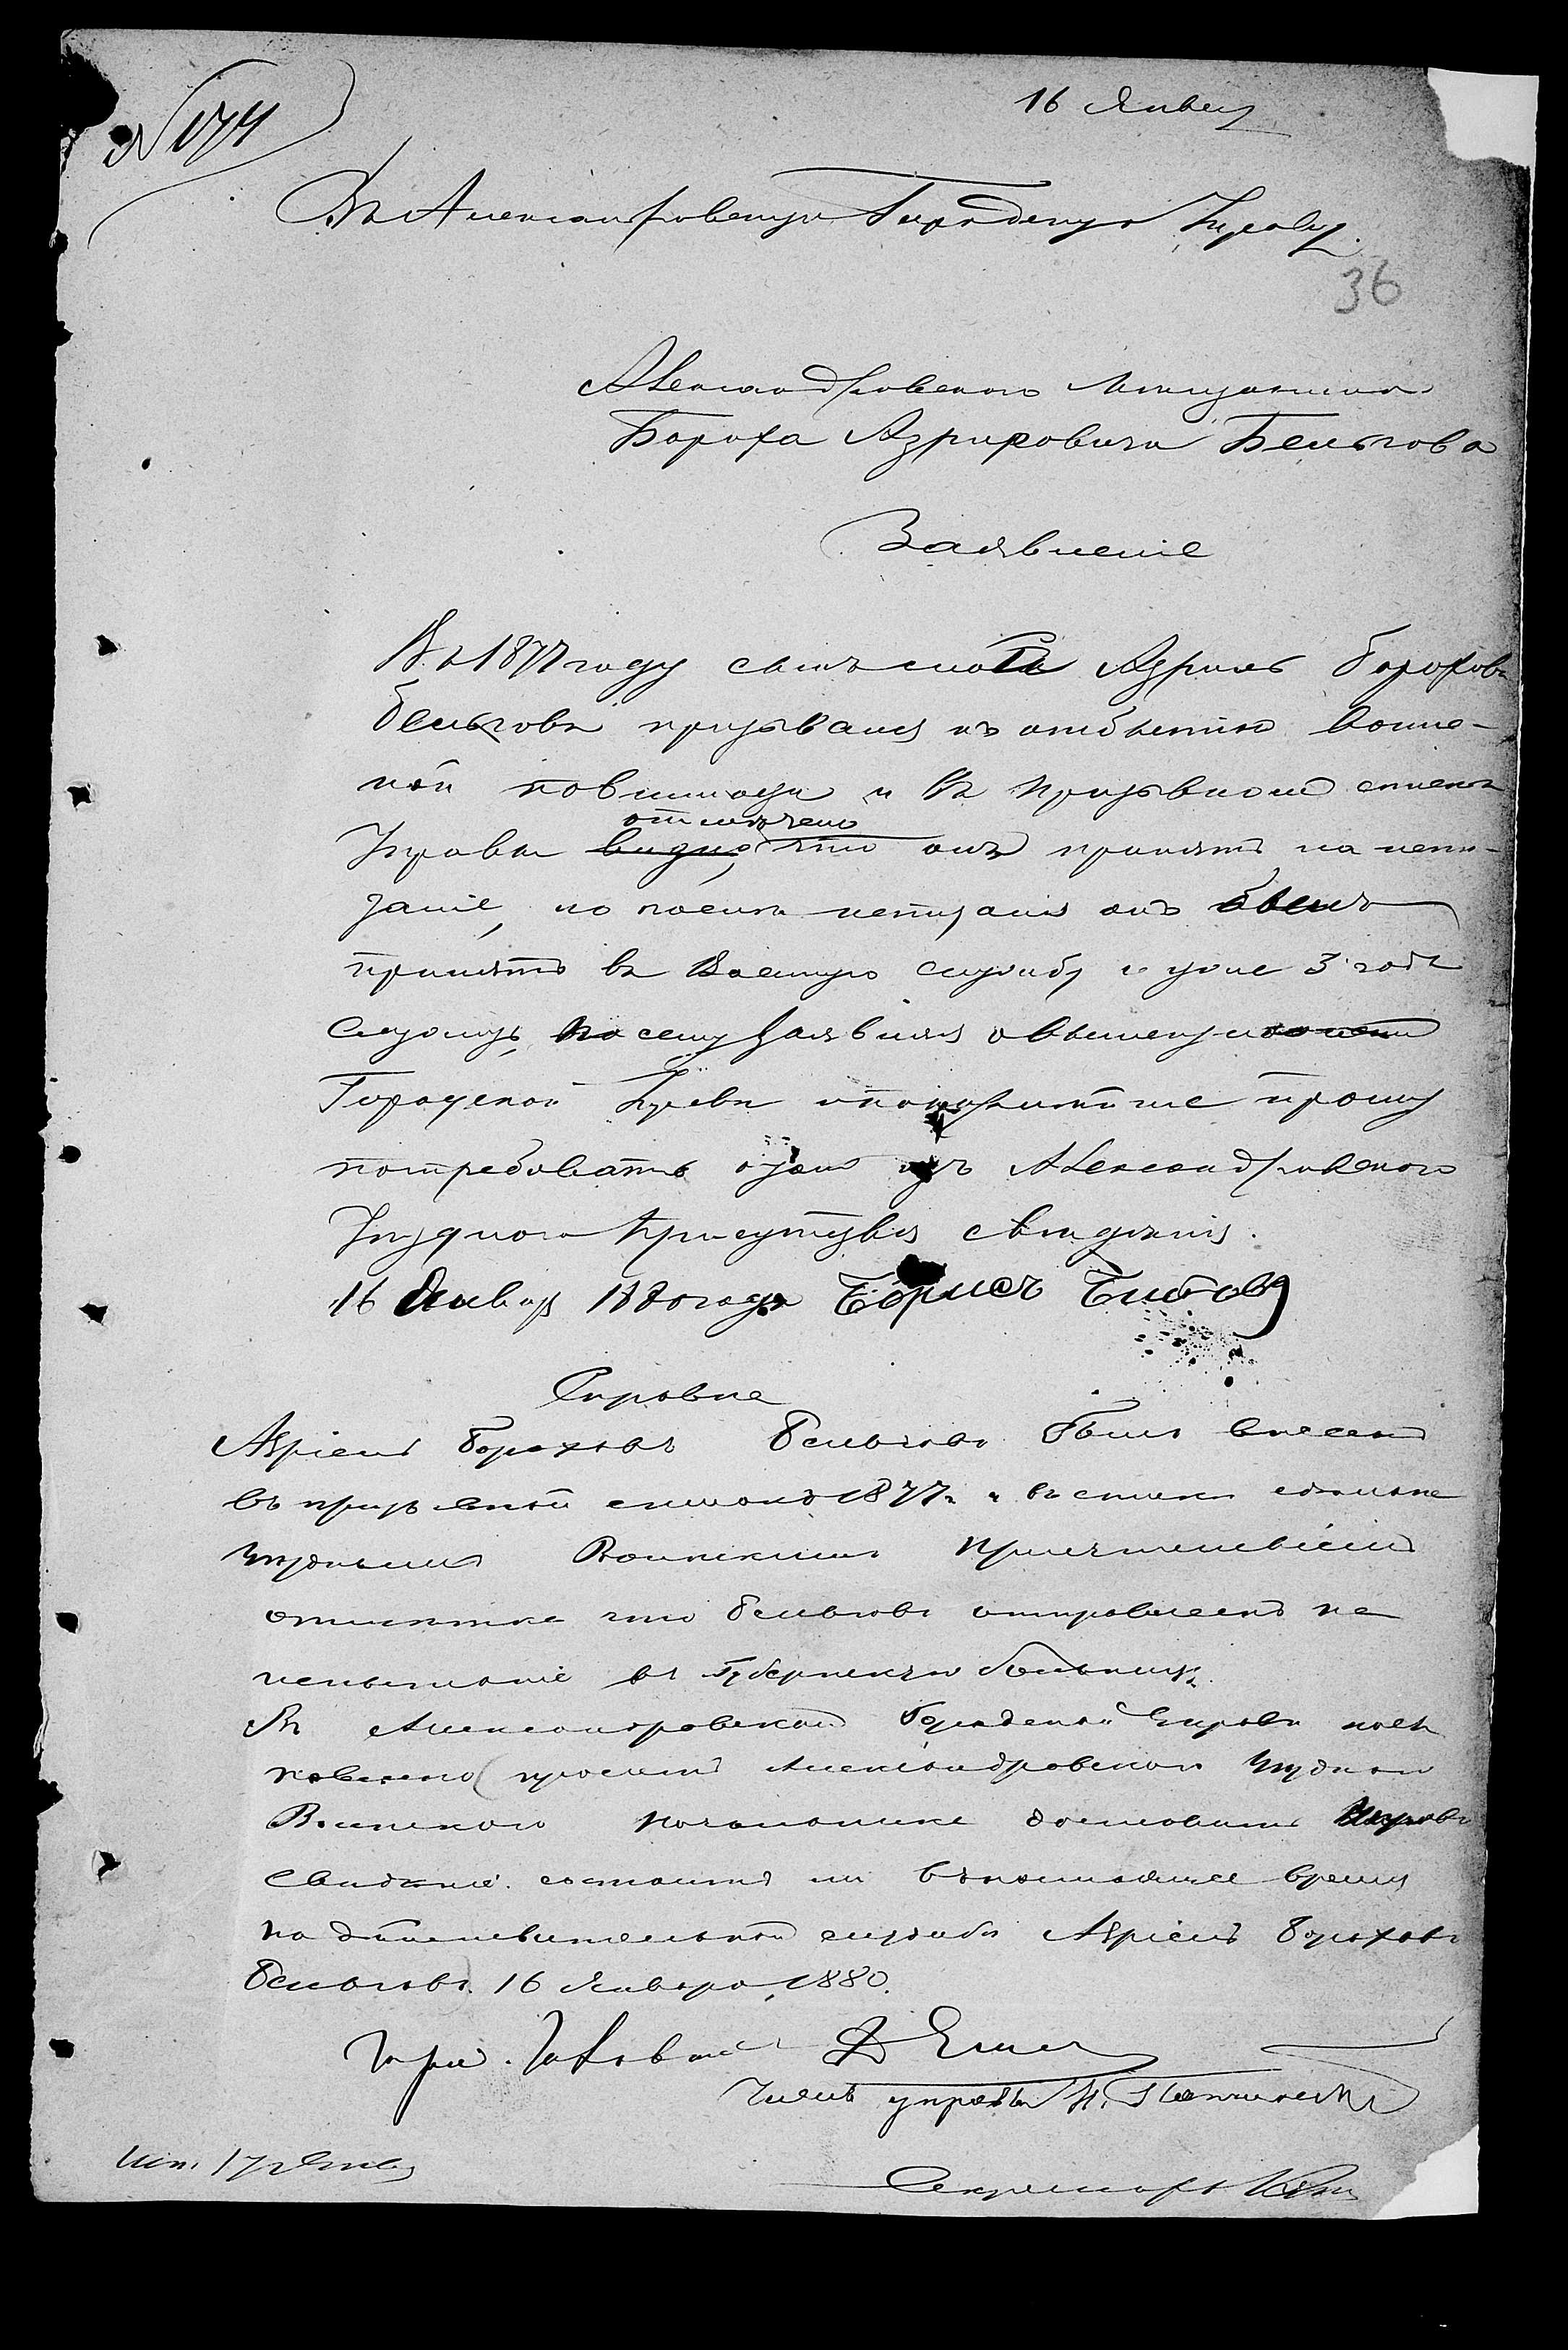 16 Январ
№ 174
Въ Александровскую Городскую Управу.
36
Александровского мещанина
Бороха Азриловича Бельгова
Заявление
Въ 1877 году сынъ мой Азриль Борохов
Бельговъ призывался къ отбытию воинс-
кой повинности и въ призывном списке
отмечено
Управы видно, что онъ принятъ на испы-
зание, но после испызания онъ былъ
принятъ въ Военную службу и уже 3 года
служитъ, по сему заявляя о вышеизложен
Городской Управе покорнейше прошу
потребовать о том изъ Александровского
Уездного присутствия сведения.
16 Январ 1880 года Борисъ
Справка
Азріель Бороховъ Бельговъ былъ внесенъ
въ призывной списокъ 1877 г. и въ списке сделана
Уезднымъ Воинскимъ Присутствіемъ
отметка что Бельговъ отправленъ на
испытаніе въ Губернскую больницу.
Въ Александровской Городской Управе пост
новлено просить Александровского Уездного
Воинского Начальника доставить Управе
сведеніе состоитъ ли въ настоящее время
на действительной службе Азріель Бороховъ
Бельговъ. 16 Января 1880.
Членъ управы Н.
Секретарь
Исп. 17 Янв